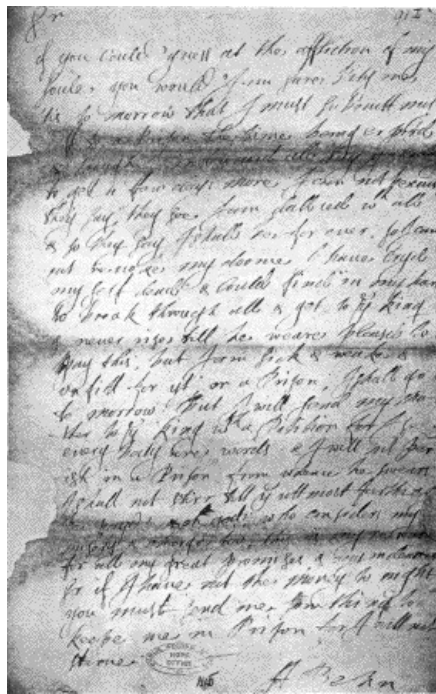 Sr
if you could guess at the affliction of my
soule you would I am sure Pity me
tis to morrow that I must submitt my
self to a Prison the time being expird
& though I indeauerd all day yesterday
to get a few days more I can not because
they say they see I am dallied wth all
& so they say I shall be for euer: so I can
not reuoke my doome I haue cryd
my self dead & could find in my hart
to break through all & get to ye king
& neuer rise till he weare pleasd to
pay this; but I am sick & weake &
vnfitt for yt; or a Prison; I shall go
to morrow: But I will send my mo
ther to ye king wth a Pitition for I see
euery body are words: & I will not per
ish in a Prison from whence he swears
I shall not stirr till ye uttmost farthing
be payd: & oh god, who considers my
misery & charge too, this is my reward
for all my great promises & my indeauers
Sr if I haue not the money to night
you must send me som thing to
keepe me in Prison for I will not
starue
A Behn